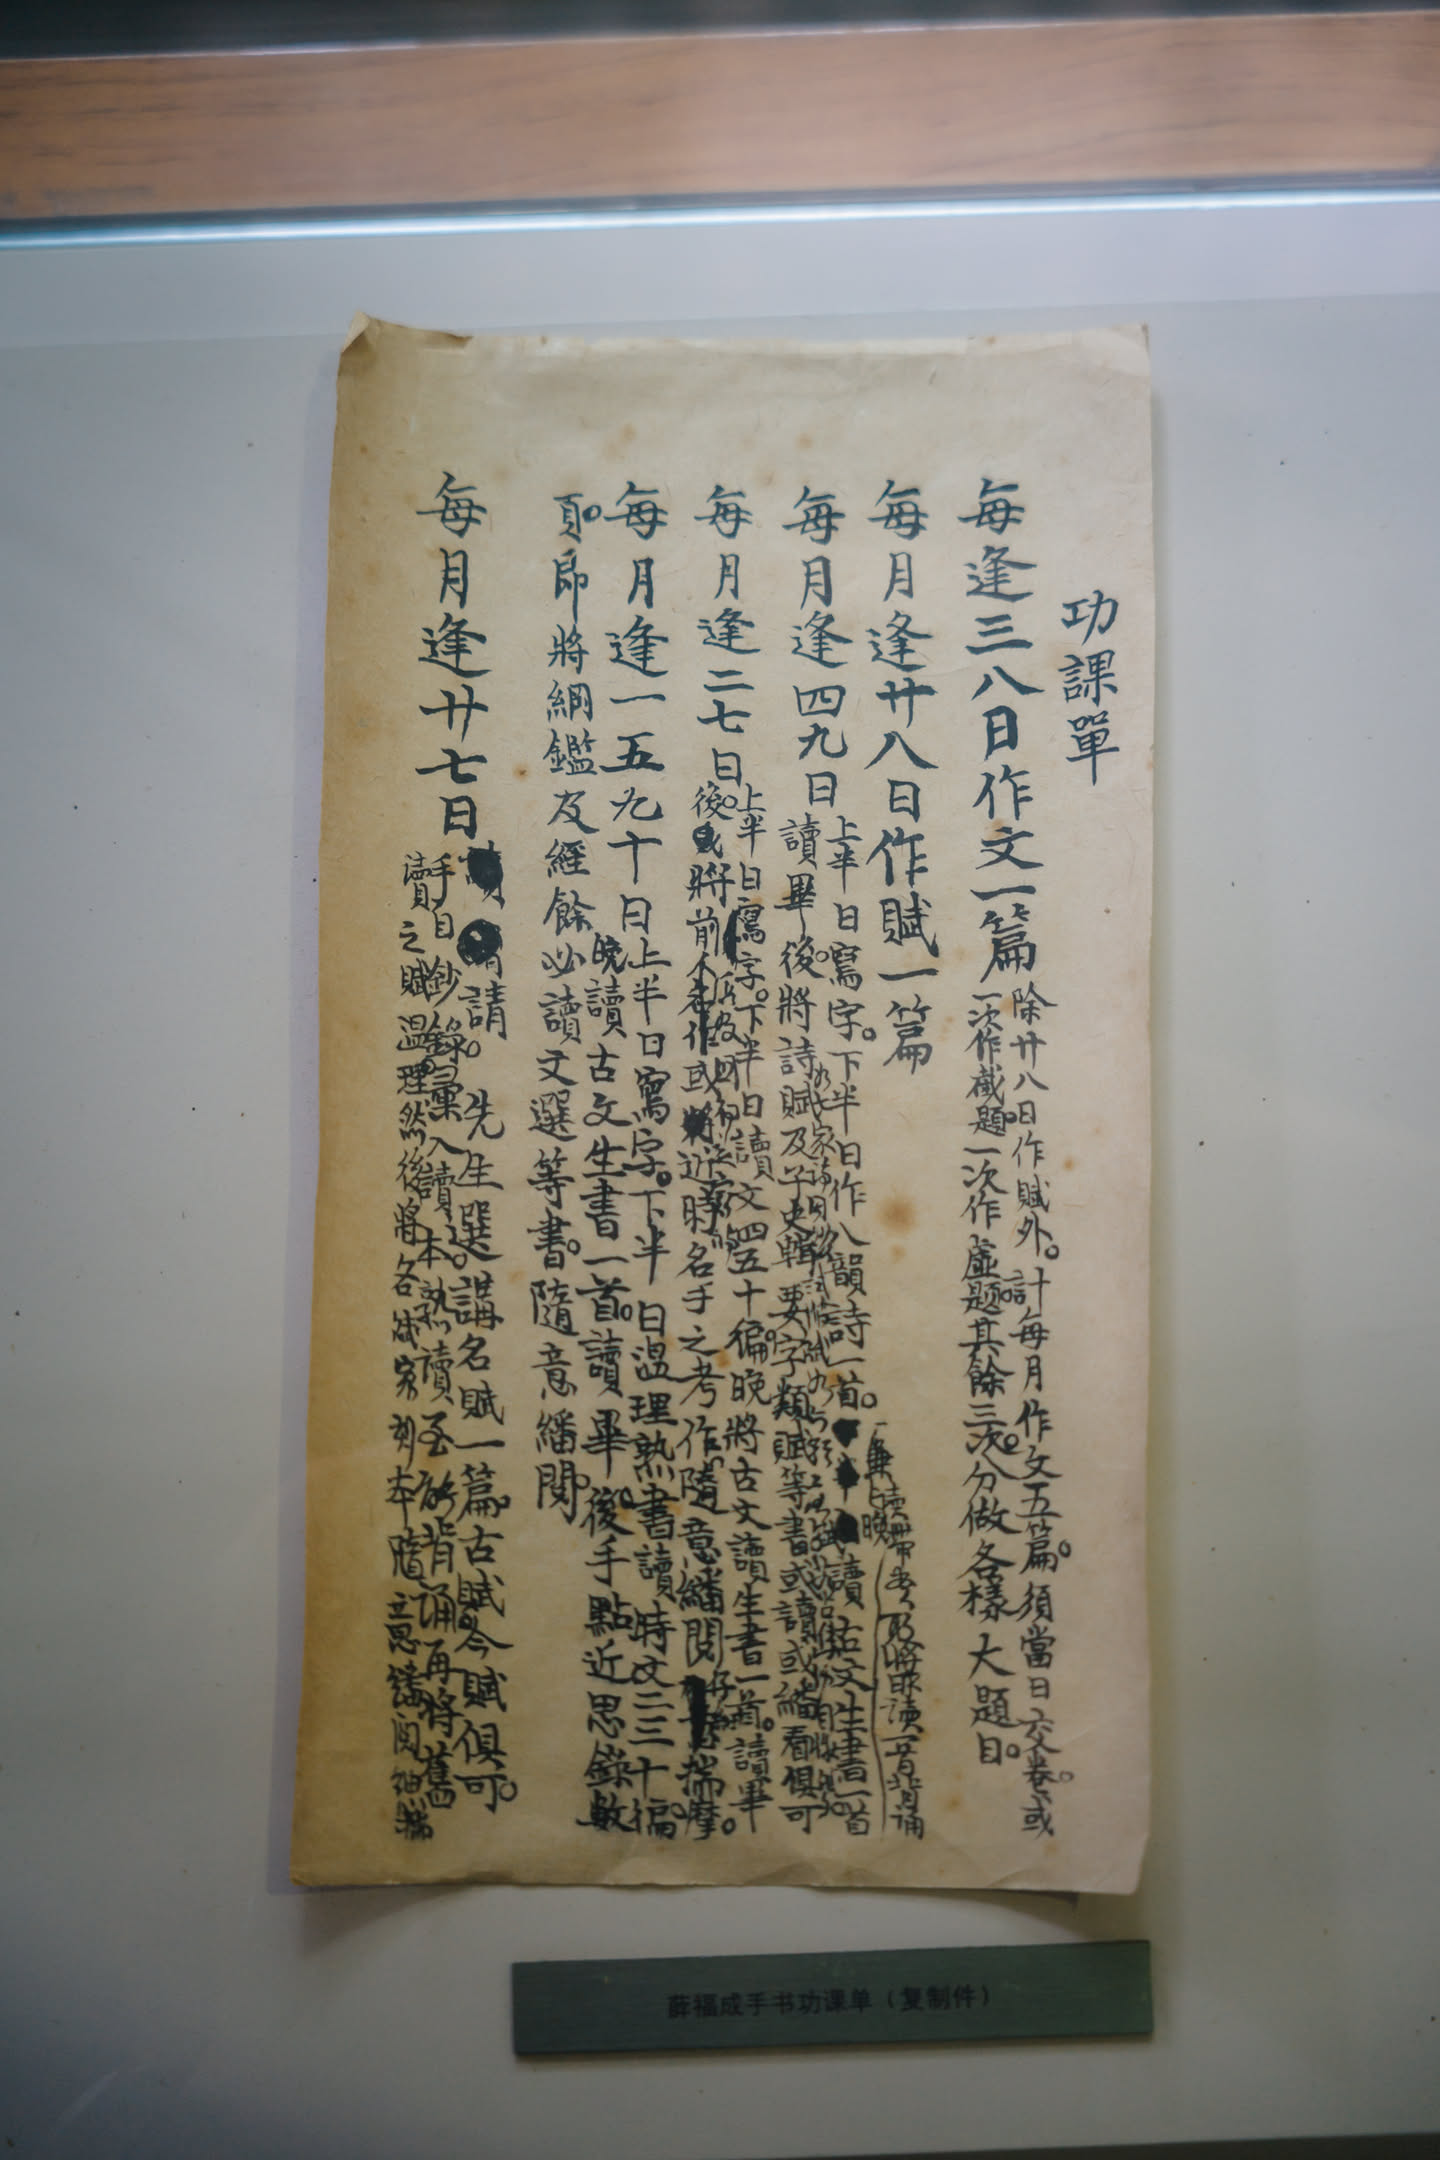 功課單
每逢三八日作文一篇
除廿八日作賦外。計每月作文五篇。須當日交卷。或
一次作截題。一次作虛題。其餘三次。分做各樣大題目。
每月逢廿八日作賦一篇
每月逢四九日
上半日寫字。下半日作八韻詩一首。讀古文生書一首
讀畢後。將詩賦及子史輯要字類賦等書或讀或繙看俱可
每月逢二七日。
上半日寫字。下半日讀文四五十徧。晚將古文讀生書一首。讀畢
後。將前人考作或近時名手之考作。隨意繙閱揣摩。
每月逢一五九十日
上半日寫字。下半日溫理熟書讀時文二三十徧。
晚讀古文生書一首。讀畢後。手點近思錄數
頁。即將綱鑑及經餘必讀文選等書。隨意繙閱
每月逢廿七日
請。先生選講名賦一篇。古賦今賦俱可。
手自鈔錄彙入讀本熟讀至能背誦再將舊
讀之賦溫理。然後將各家刻本隨意繙閱
薛福成手书功课单（复制件）